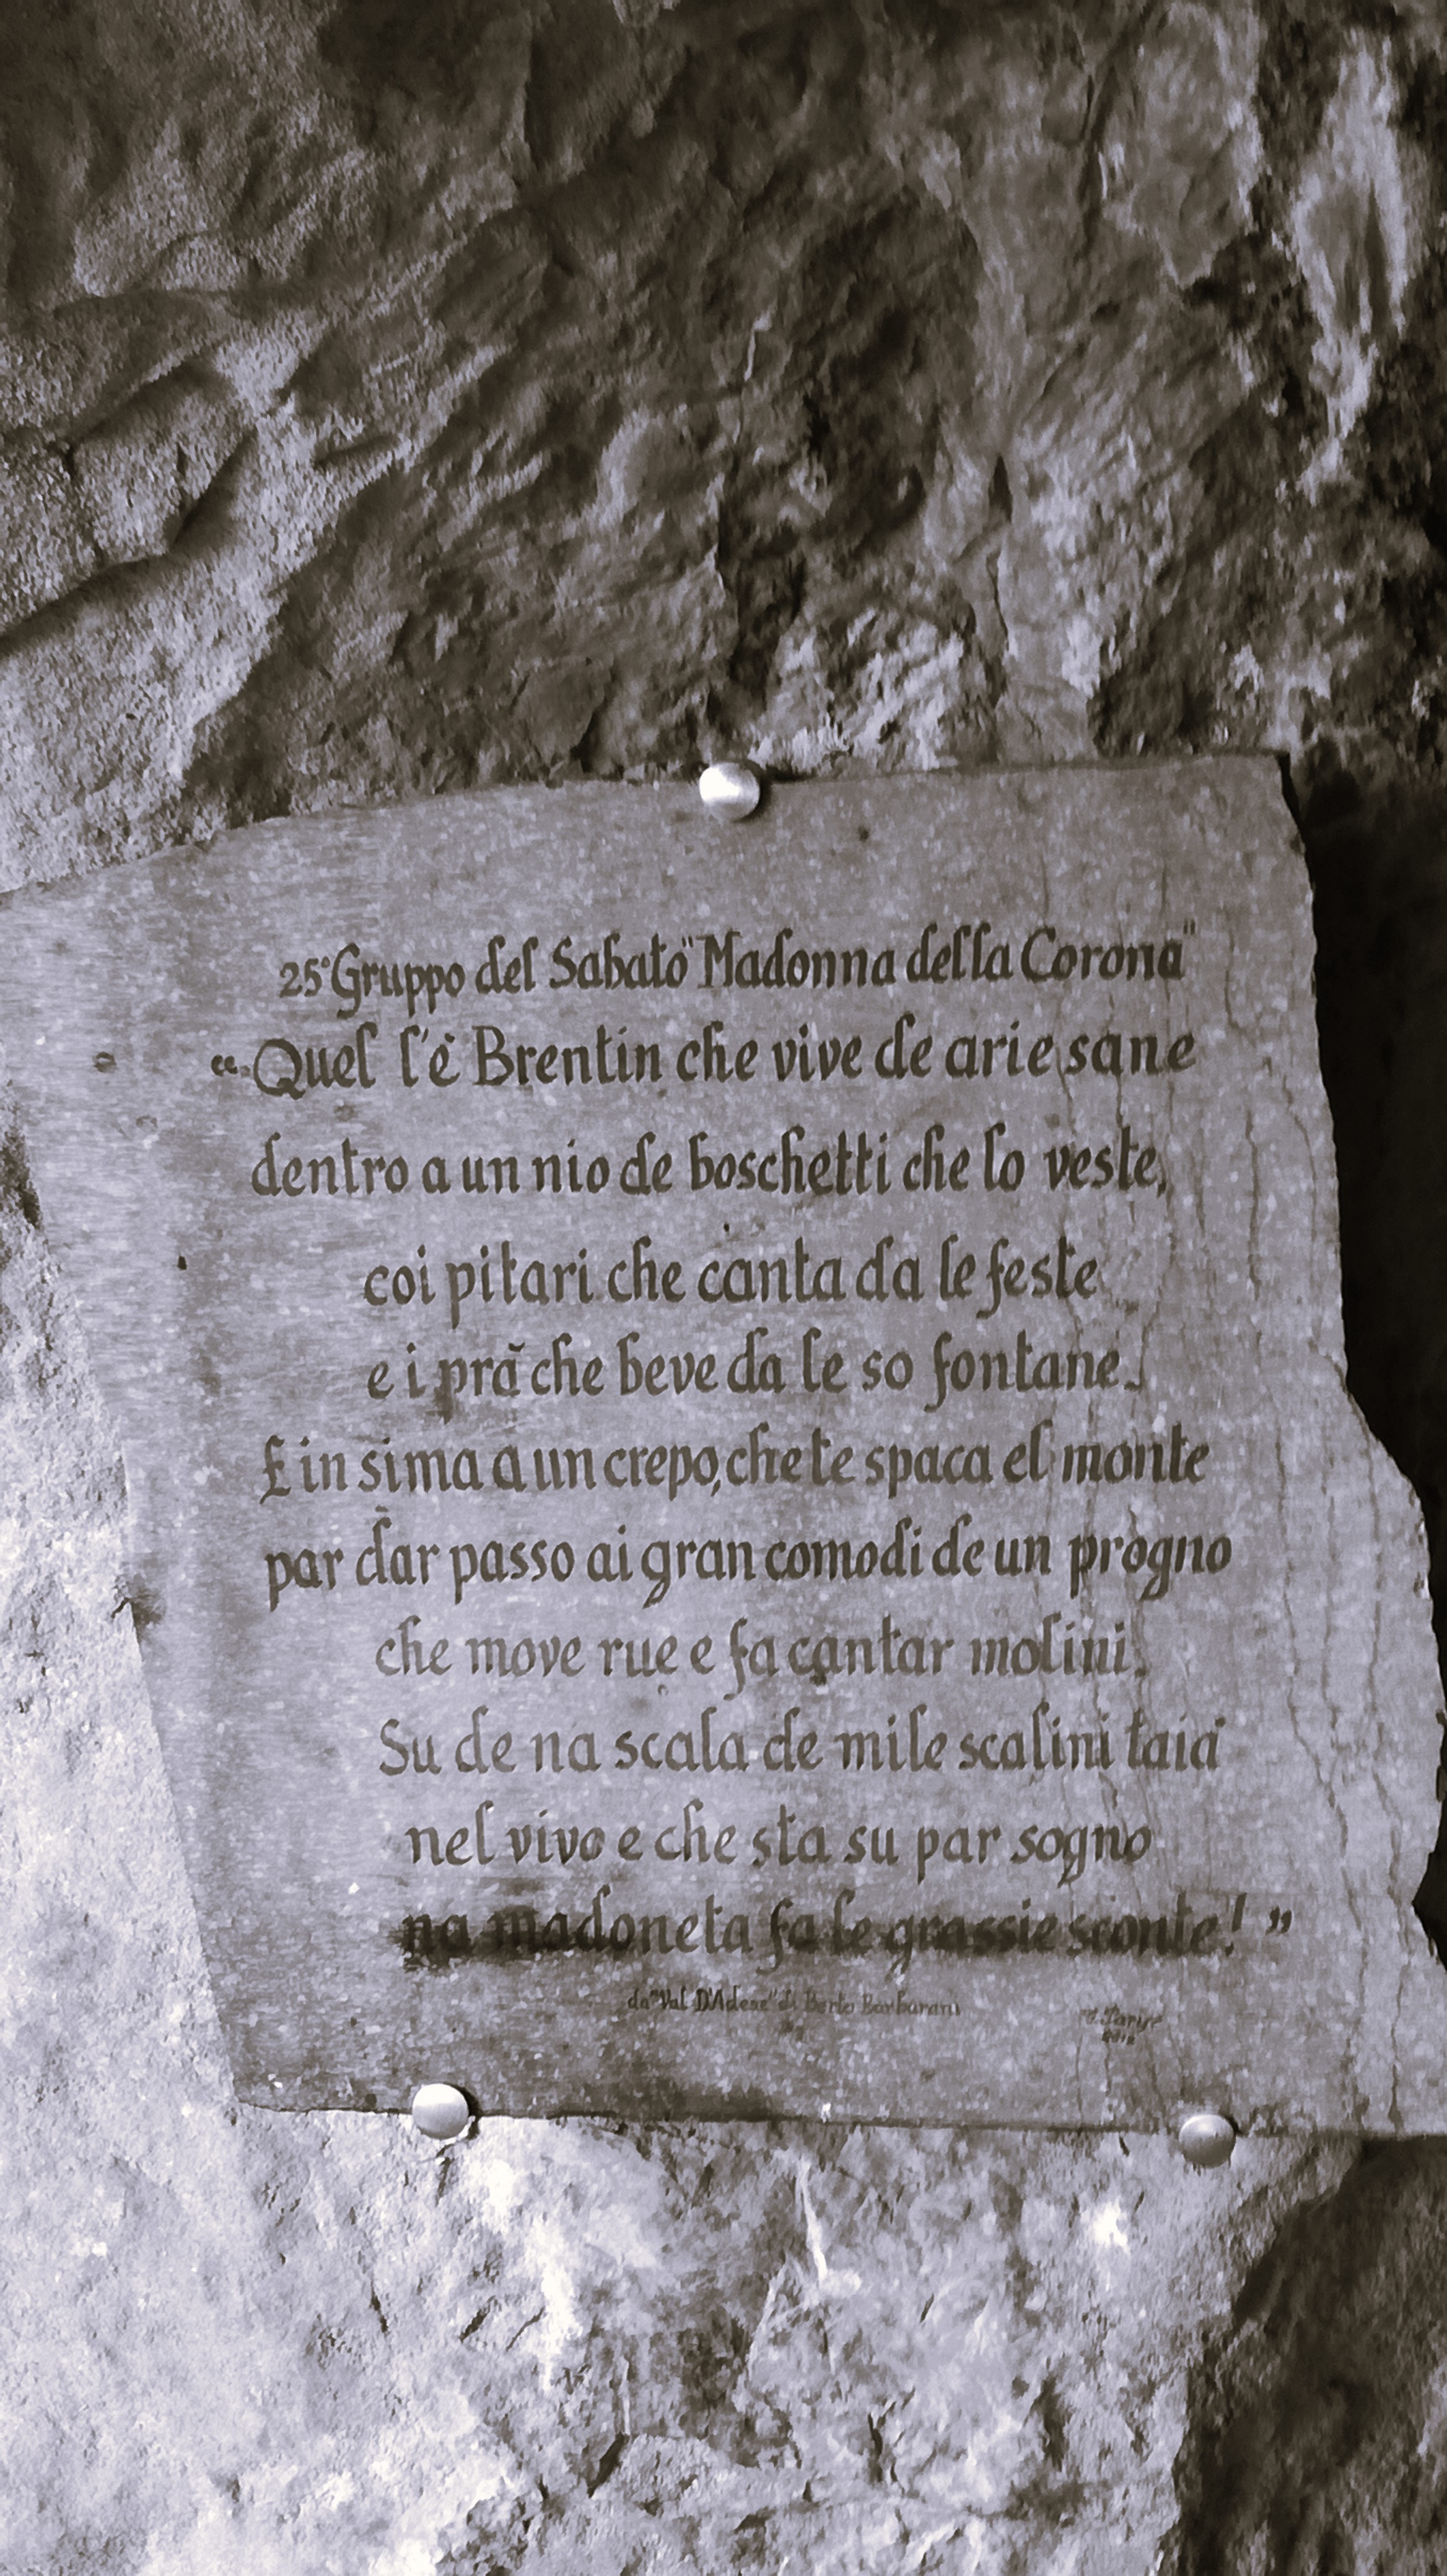 25° Gruppo del Sabato "Madonna della Corona"
"Quel l'è Brentin che vive de arie sane
dentro a un nio de boschetti che lo veste,
coi pitari che canta da le feste
e i prà che beve da le so fontane.
E in sima a un crepo, che te spaca el monte
par dar passo ai gran comodi de un progno
che move rue e fa cantar molini.
Su de na scala de mile scalini taià
nel vivo e che sta su par sogno
na madoneta fa le grassie sconte! "
da "Val D'Adese" di Berto Barbarani